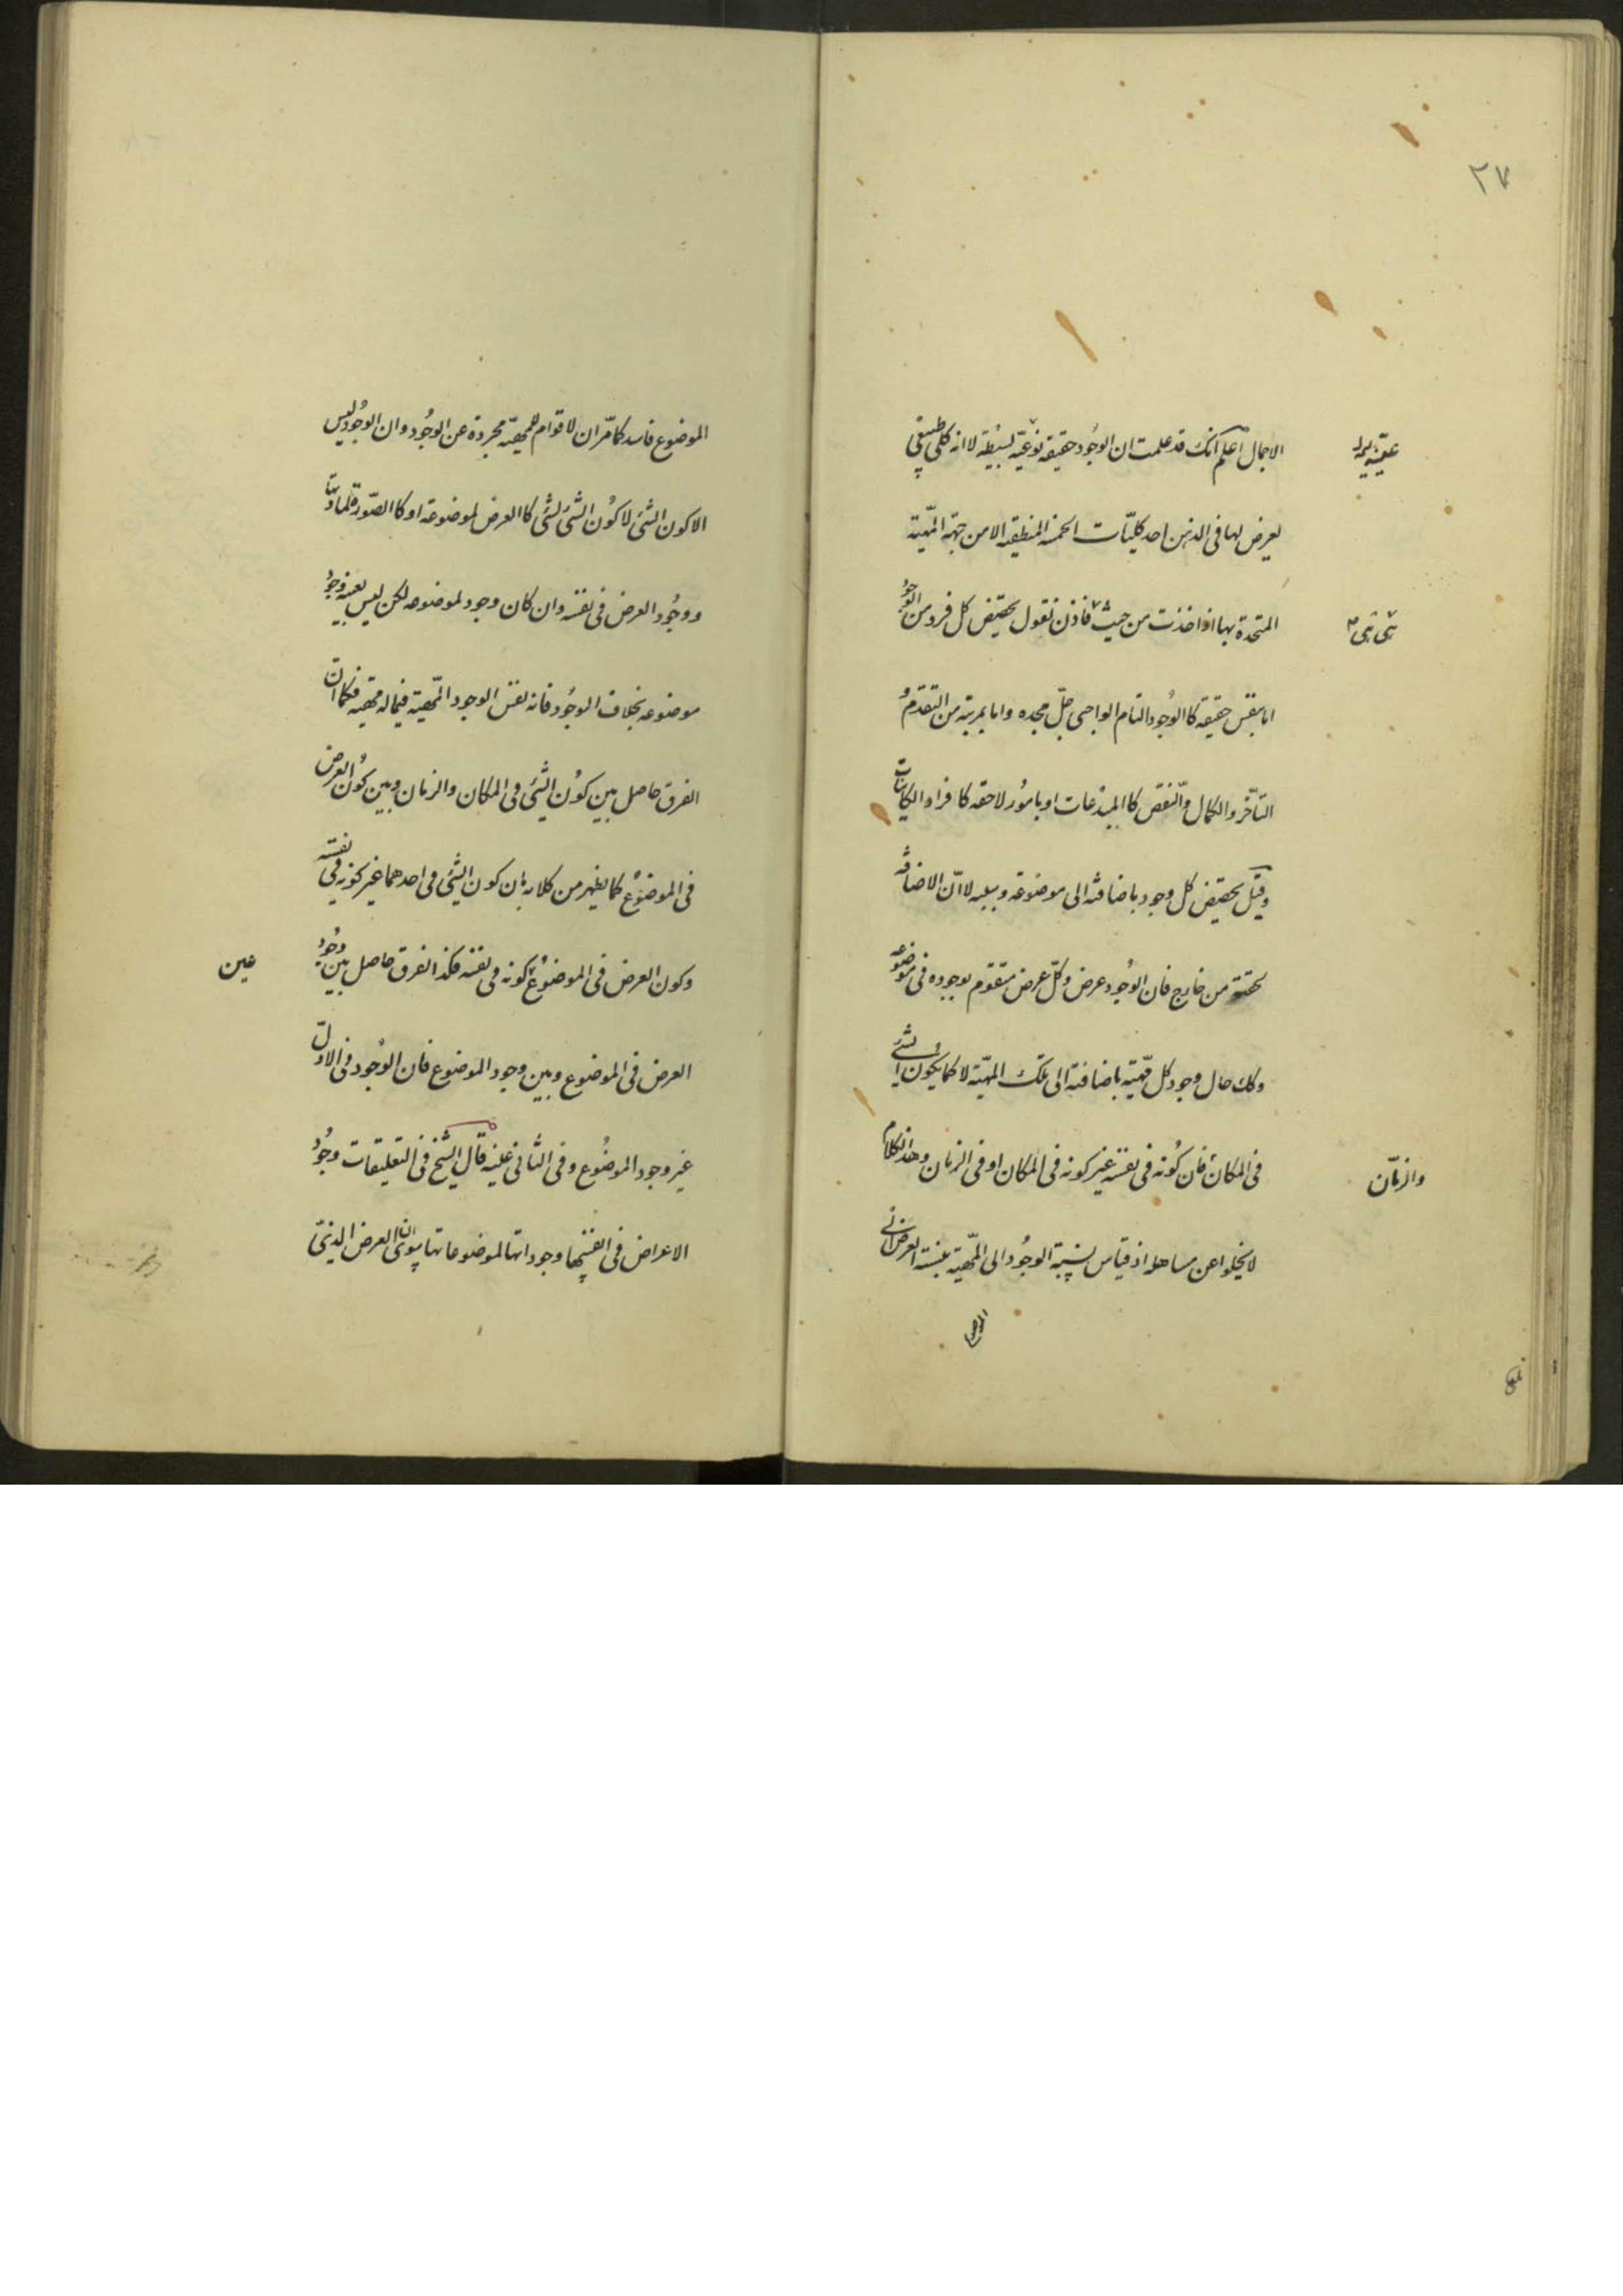 ٢٧
الاجمال اعلم انك قد علمت ان الوجود حقيقة نوعيّة بسيطة لا انه كلى طبيعى
يعرض لها فى الذهن احد كليّات الخمسة المنطقية الا من جهة المهيّة
المتحدة بها اذا اخذت من حيث فاذن نقول تخصّص كل فرد من الوجود
اما بنفس حقيقة كا الوجود التام الواجبى جلّ مجده واما بمرتبة من التقدم و
التأخر والكمال والنّقص كا المبدعات او بامور لاحقة كا فراد الكاينات
وقيل تخصّص كل وجود باضافته الى موضوعه وسببه لا انّ الاضافة
لحقته من خارج فان الوجود عرض وكلّ عرض متقوم بوجوده فى موضوعه
وكك حال وجود كل مهيّة باضافته الى تلك المهيّة لا كما يكون الشئ
فى المكان فان كونه فى نفسه غير كونه فى المكان او فى الزمان وهذا الكلام
والزمان
لا يخلوا عن مساهلة اذ قياس نسبة الوجود الى المهيّة بنسبة العرض الى
الموضوع فاسد كما مرّ ان لا قوام للمهيّة مجردة عن الوجود وان الوجود ليس
الا كون الشئ لا كون الشئ لشئ كا العرض لموضوعه او كا الصّورة لمادتها
ووجود العرض فى نفسه وان كان وجود لموضوعه لكن ليس بعينه وجود
موضوعه بخلاف الوجود فانه نفس الوجود المهيّة فيما له مهية فكما انّ
الفرق حاصل بين كون الشئ فى المكان والزمان وبين كون العرض
فى الموضوع كما يظهر من كلامه بان كون الشئ فى احدهما غير كونه فى نفسه
وكون العرض فى الموضوع كونه فى نفسه فكذا الفرق حاصل بين وجود
عين
العرض فى الموضوع وبين وجود الموضوع فان الوجود فى الاول
غير وجود الموضوع وفى الثانى عينه قال الشيخ فى التعليقات وجود
الاعراض فى انفسها وجوداتها لموضوعاتها سوى ان العرض الذى